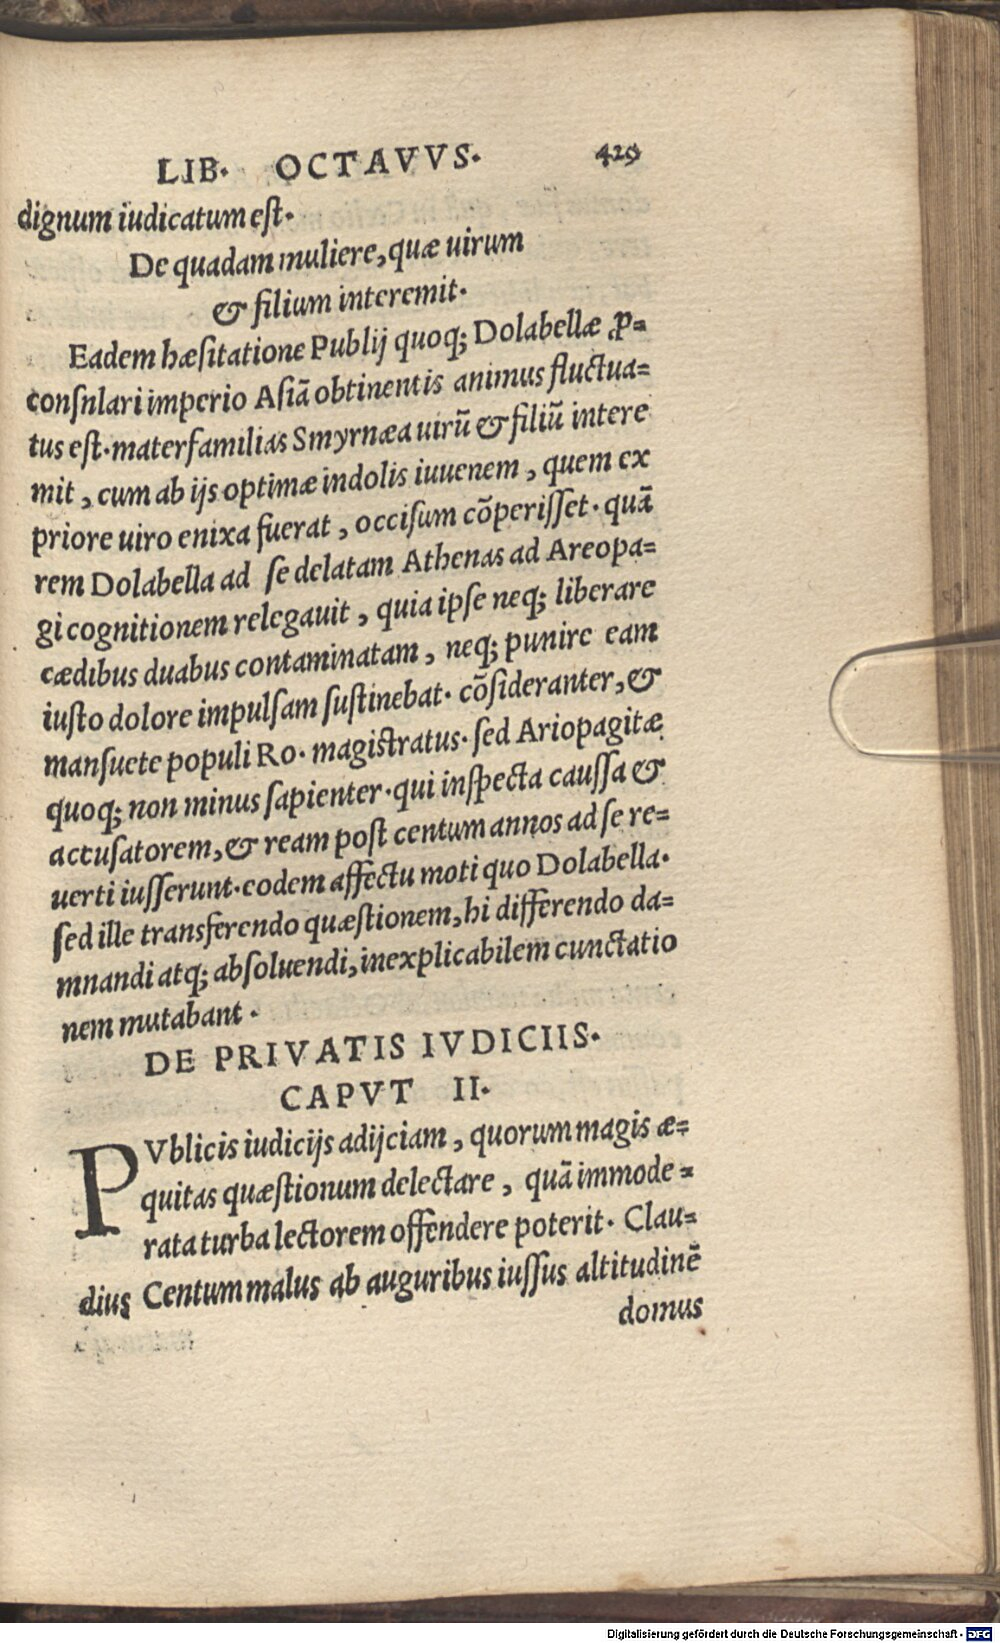 LIB. OCTAVVS. 429
dignum iudicatum est.
De quadam muliere, quæ uirum
& filium interemit.
Eadem hæsitatione Publij quoq; Dolabellæ ꝓ=
consnlari imperio Asiā obtinentis animus fluctua=
tus est. materfamilias Smyrnæa uirū & filiū intere
mit, cum ab ijs optimæ indolis iuuenem, quem ex
priore uiro enixa fuerat, occisum cōperisset. quā
rem Dolabella ad se delatam Athenas ad Areopa=
gi cognitionem relegauit, quia ipse neq; liberare
cædibus duabus contaminatam, neq; punire eam
iusto dolore impulsam sustinebat. cōsideranter, &
mansuete populi Ro. magistratus. sed Ariopagitæ
quoq; non minus sapienter. qui inspecta caussa &
accusatorem, & ream post centum annos ad se re=
uerti iusserunt. eodem affectu moti quo Dolabella.
sed ille transferendo quæstionem, hi differendo da=
mnandi atq; absoluendi, inexplicabilem cunctatio
nem mutabant.
DE PRIVATIS IVDICIIS.
CAPVT II.
PVblicis iudicijs adijciam, quorum magis æ=
quitas quæstionum delectare, quā immode=
rata turba lectorem offendere poterit. Clau=
dius Centummalus ab auguribus iussus altitudinē
domus
Digitalisierung gefördert durch die Deutsche Forschungsgemeinschaft - DFG